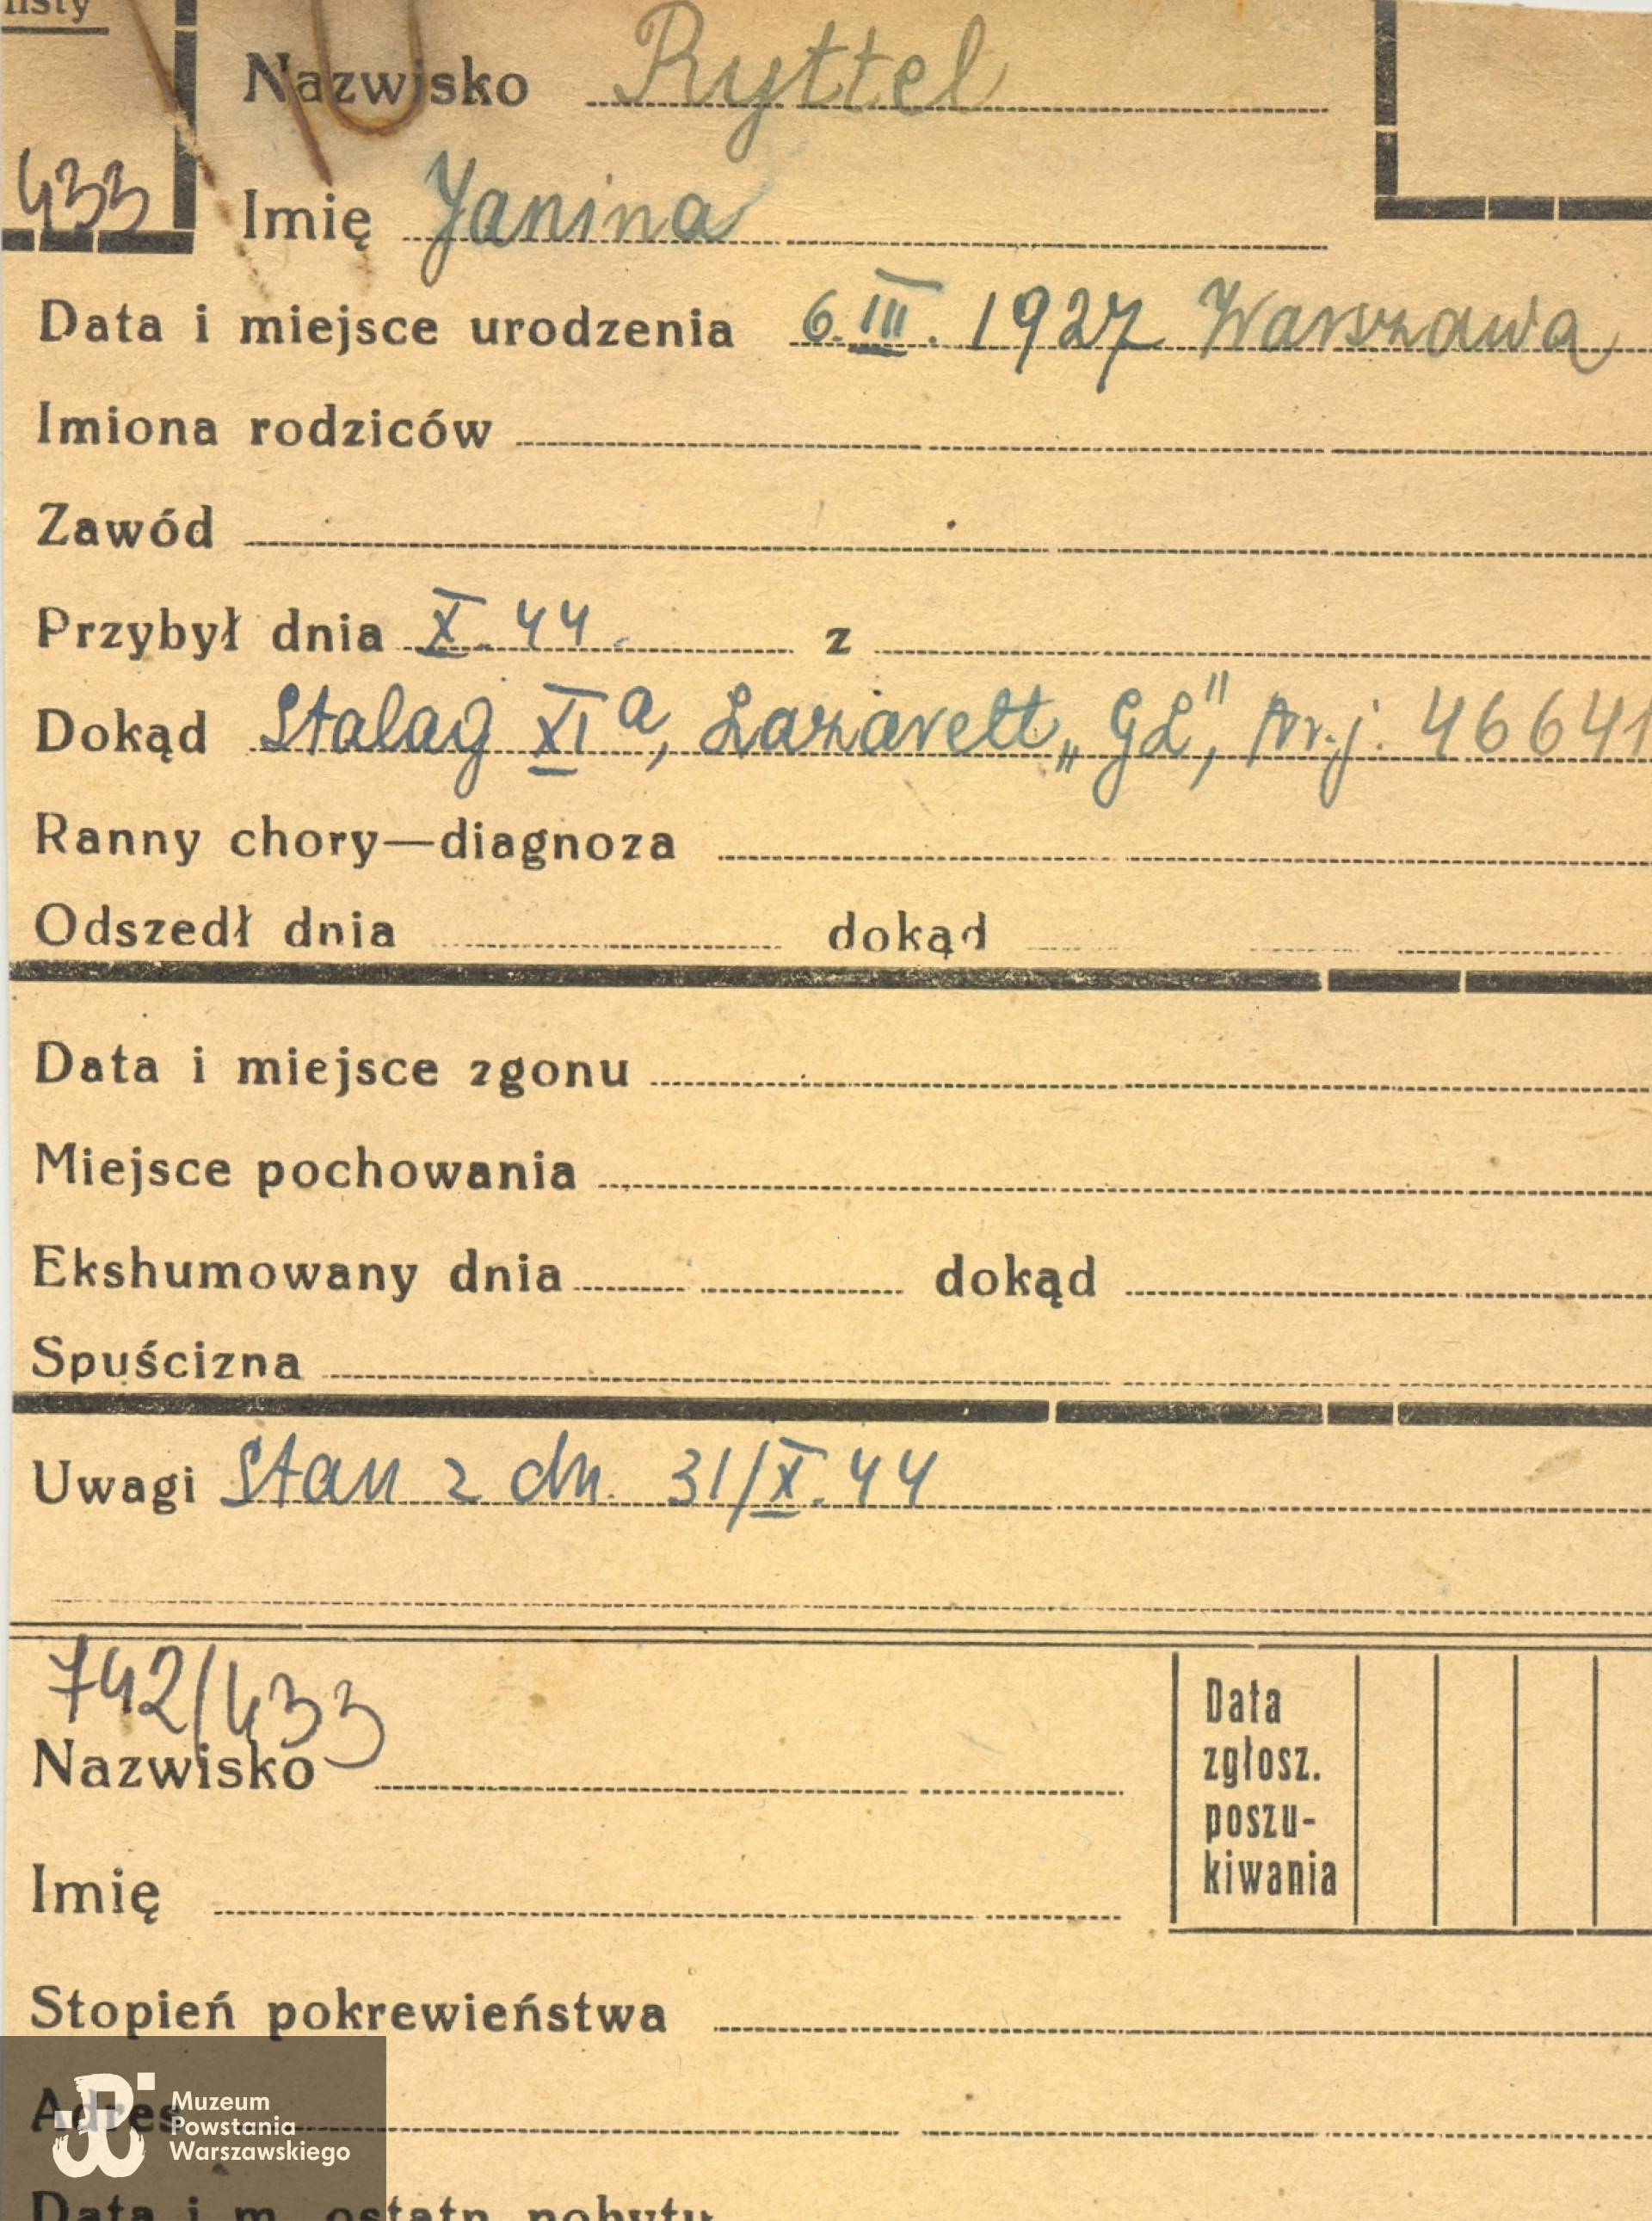 listy
Nazwisko Ryttel
433
Imię Janina
Data i miejsce urodzenia 6.III.1927 Warszawa
Imiona rodziców
Zawód
Przybył dnia X.44. z
Dokąd Stalag XIa, Lazarett „GL”, nr.j. 46641
Ranny chory—diagnoza
Odszedł dnia dokąd
Data i miejsce zgonu
Miejsce pochowania
Ekshumowany dnia dokąd
Spuścizna
Uwagi Stan z dn. 31/X.44
742/433
Nazwisko
Imię
Data
zgłosz.
poszu-
kiwania
Stopień pokrewieństwa
Adres
Muzeum
Powstania
Warszawskiego
Data i m. ostatn. pobytu